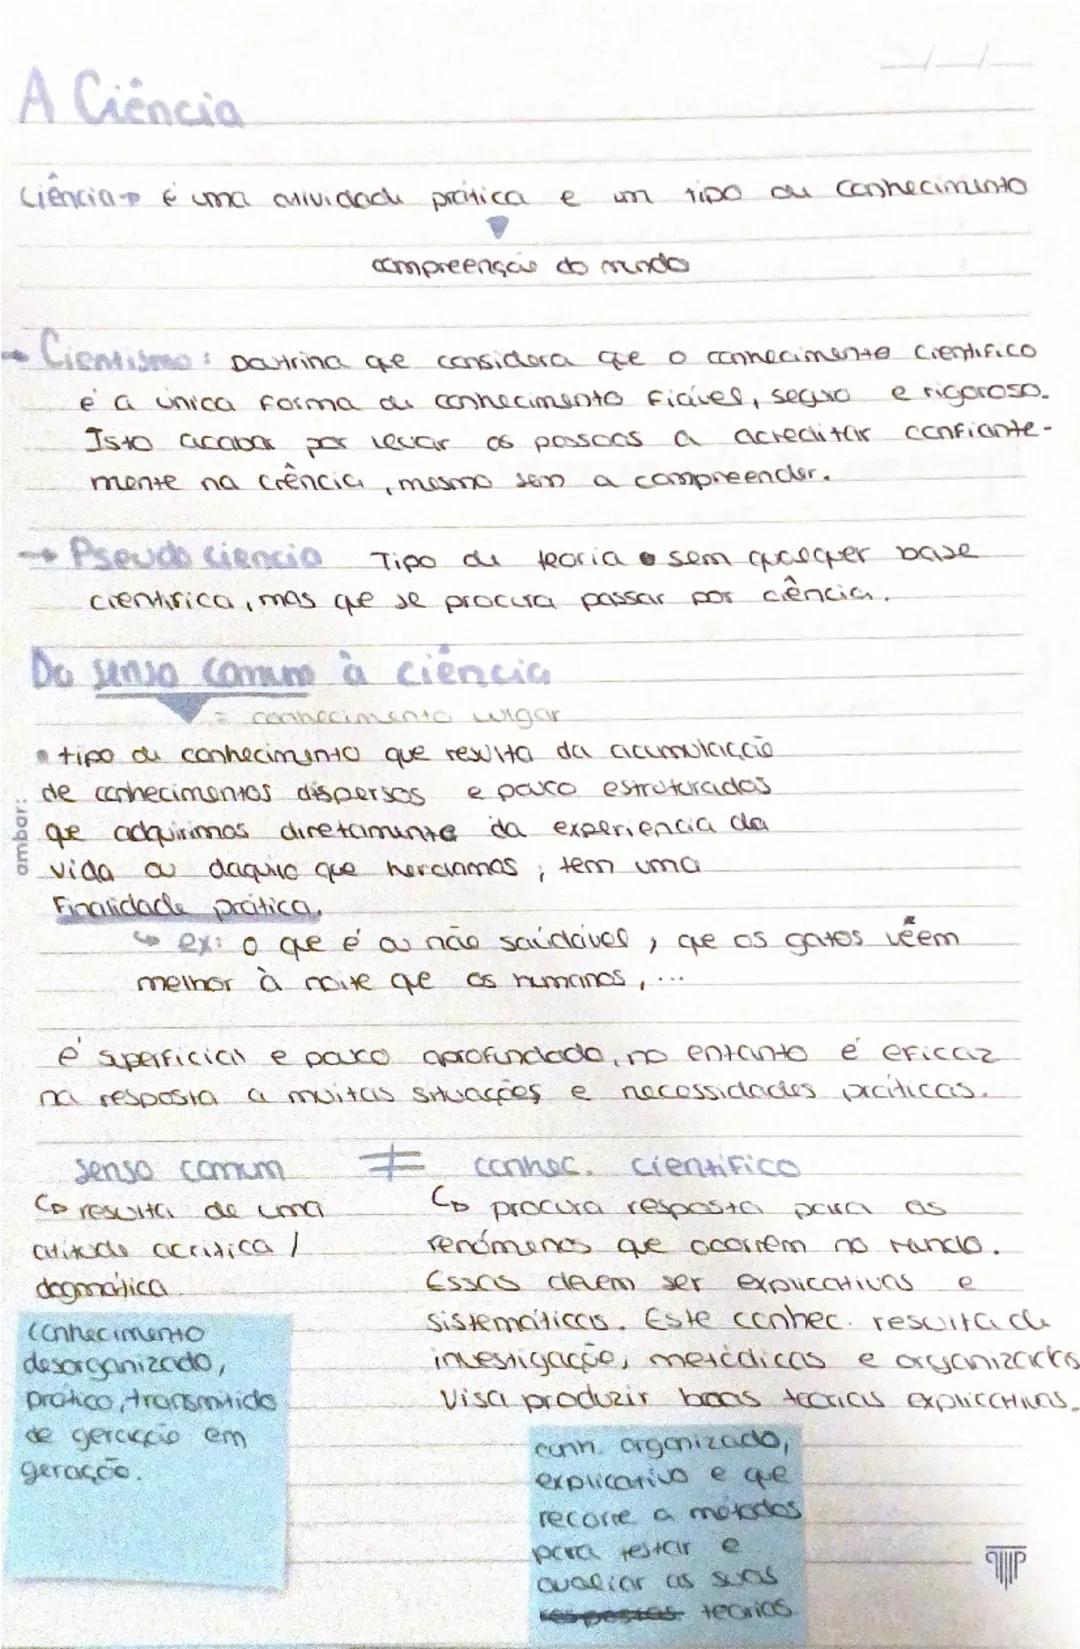 A Ciência
Ciência → é uma atividade prática e um tipo de conhecimento
compreensão do mundo
→ Cientismo: Doutrina que considera que o conhecimento científico
é a única forma de conhecimento fiável, seguro e rigoroso.
Isto acaba por levar as pessoas a acreditar confiante-
mente na ciência, mesmo sem a compreender.
→ Pseudo ciencia Tipo de teoria sem qualquer base
cientifica, mas que se procura passar por ciência.
Do senso comum à ciência
= conhecimento vulgar
• tipo de conhecimento que resulta da acumulação
de conhecimentos dispersos e pouco estruturados
que adquirimos diretamente da experiencia da
vida ou daquilo que herdamos; tem uma
Finalidade prática.
↳ ex: o que é ou não saudável, que os gatos vêem
melhor à noite que os humanos, ...
é superficial e pouco aprofundado, no entanto é eficaz
na resposta a muitas situações e necessidades práticas.
senso comum ≠ conhec. científico
↳ resulta de uma
atitude acrítica /
dogmática.
conhecimento
desorganizado,
prático, transmitido
de geração em
geração.
↳ procura resposta para os
fenómenos que ocorrem no mundo.
Essas devem ser explicativas e
sistemáticas. Este conhec. resulta de
investigação, metódicas e organizadas
Visa produzir boas teorias explicativas.
conh. organizado,
explicativo e que
recorre a métodos
para testar e
avaliar as suas
respostas teorias
ambar: